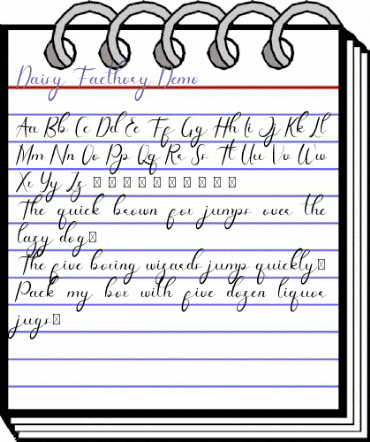 Daisy Facthory Demo
Aa Bb Cc Dd Ee Ff Gg Hh Ii Jj Kk Ll
Mm Nn Oo Pp Qq Rr Ss Tt Uu Vv Ww
Xx Yy Zz
The quick brown fox jumps over the
lazy dog
The five boxing wizards jump quickly
Pack my box with five dozen liquor
jugs